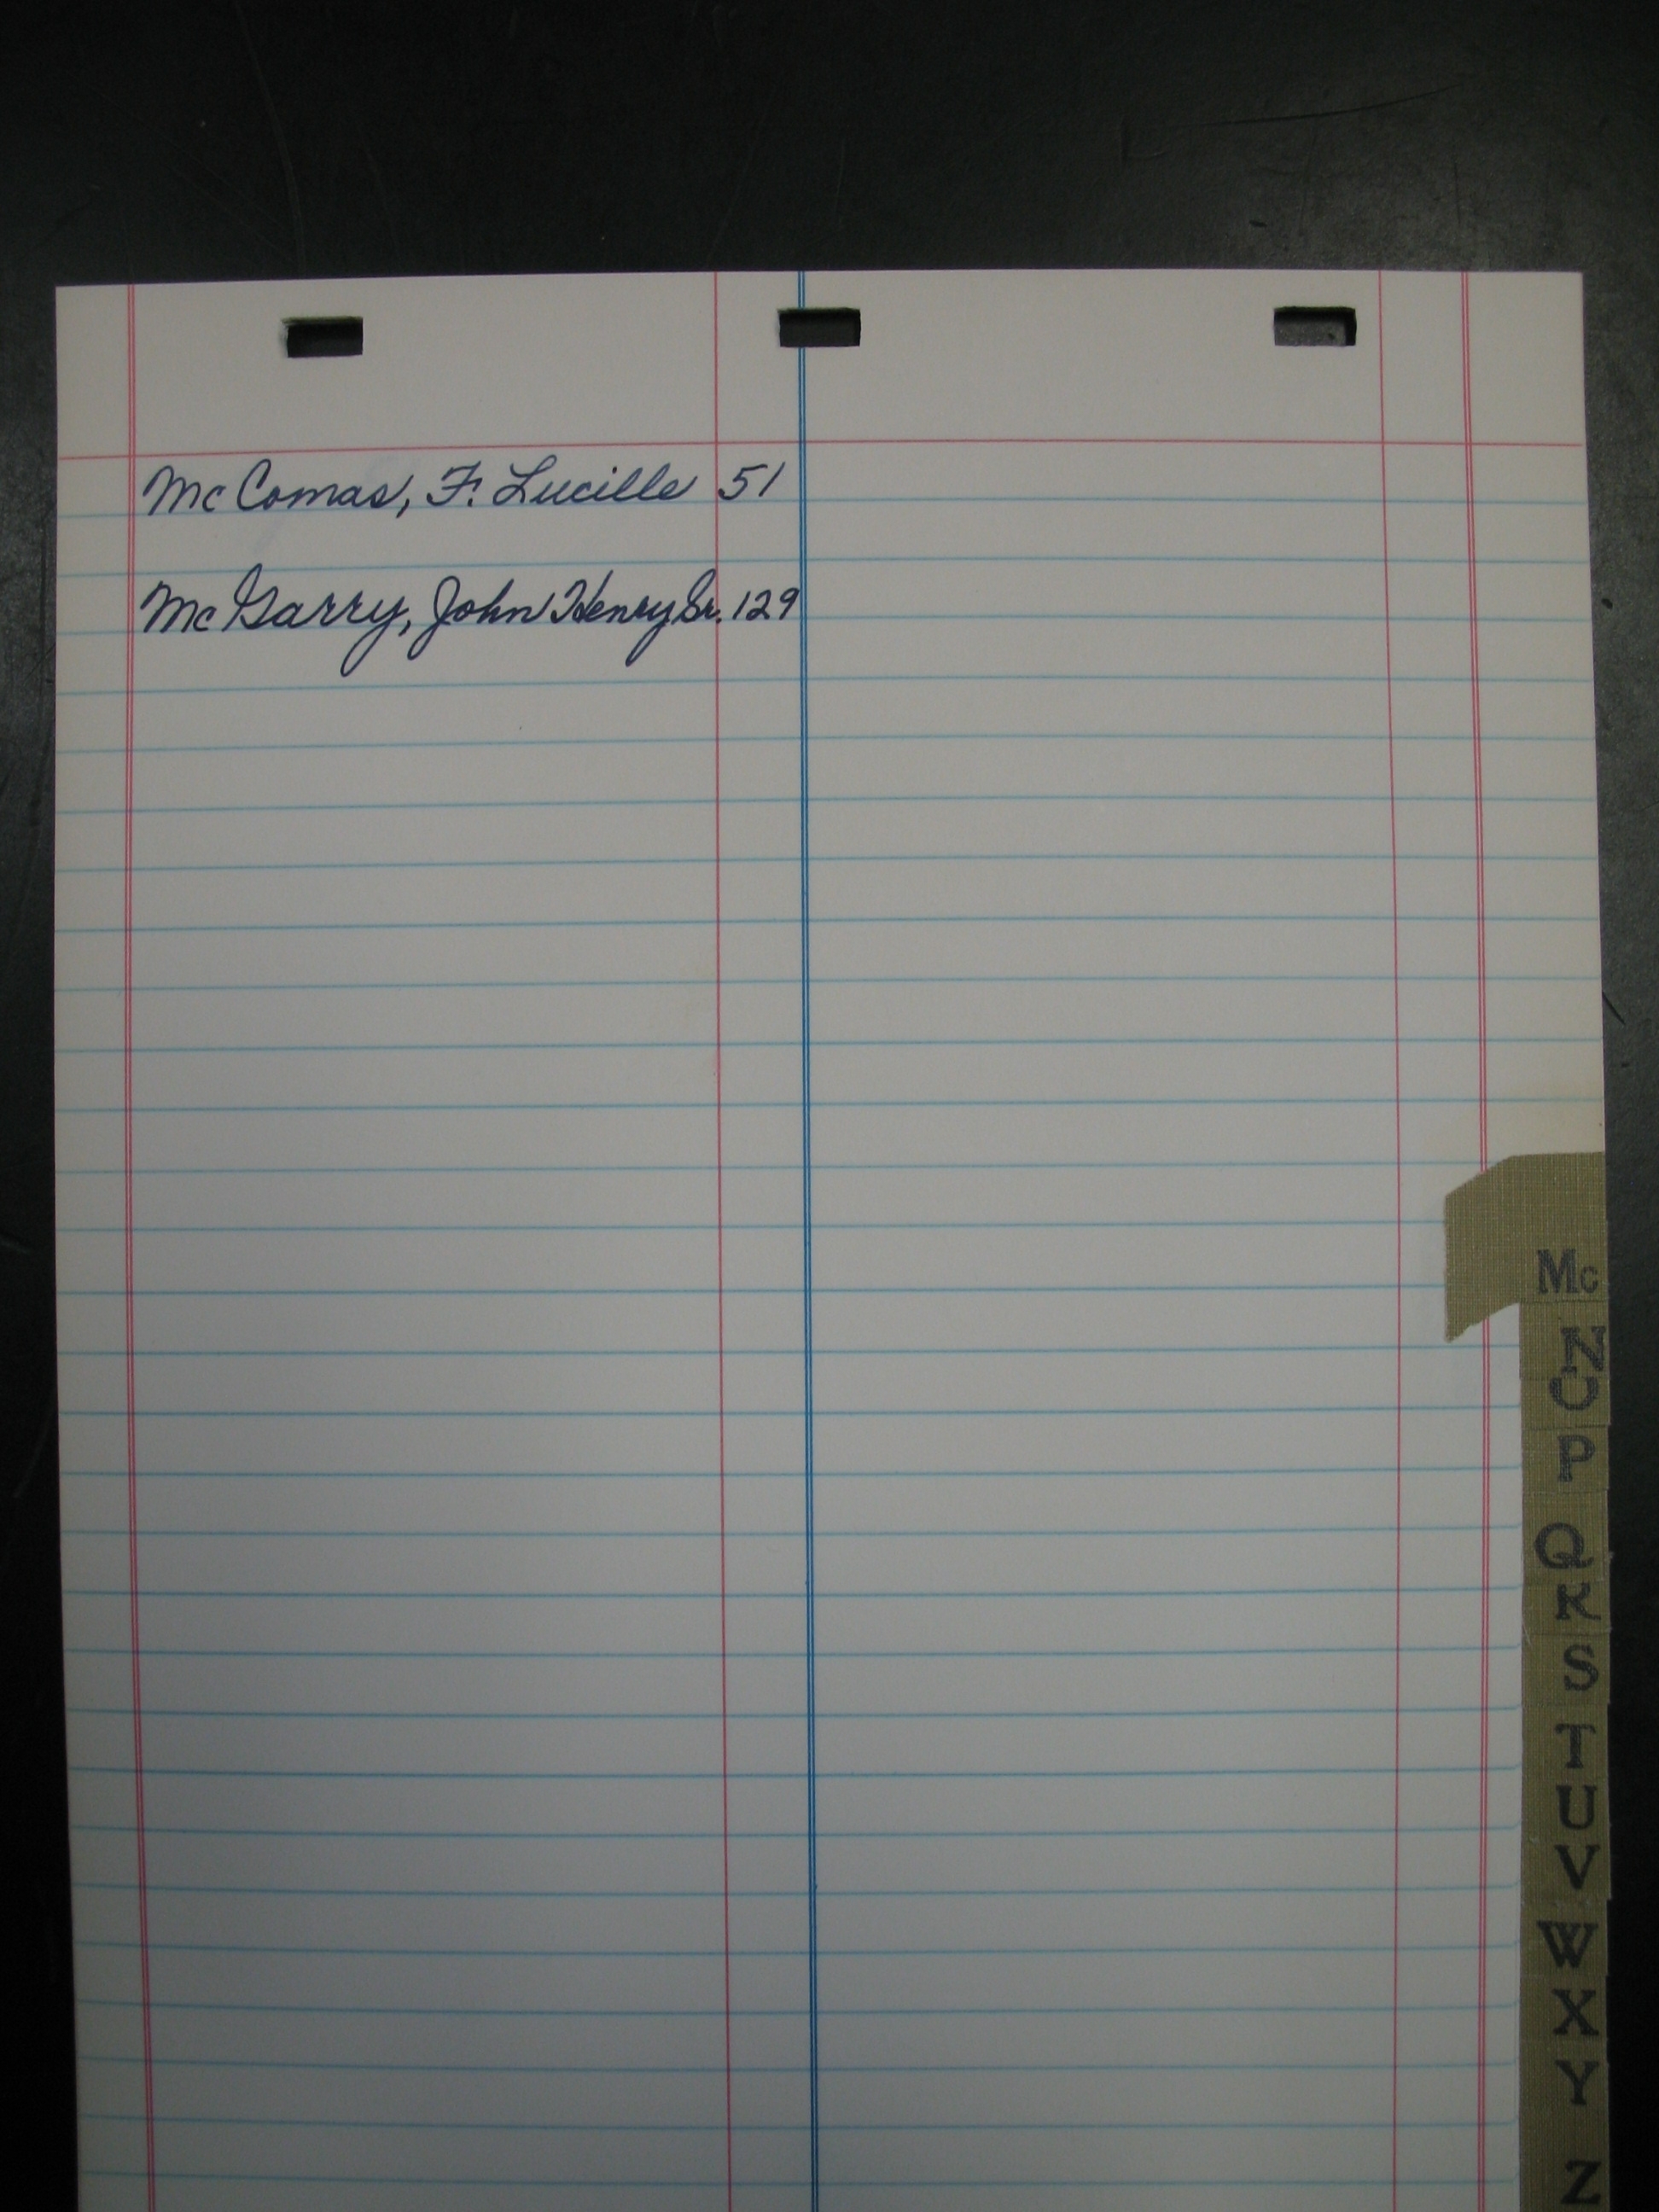 McComas, F. Lucille 51
McGarry, John Henry Sr. 129
Mc
N
O
P
Q
R
S
T
U
V
W
X
Y
Z